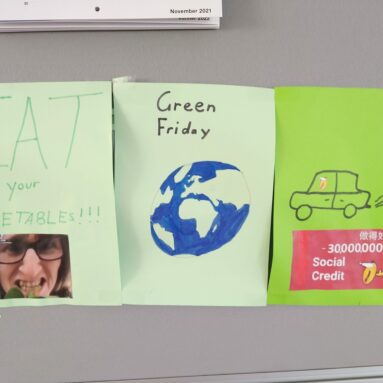 November 2021
EAT
your
ETABLES!!!
Green
Friday
做得好
- 30,000,000
Social
Credit